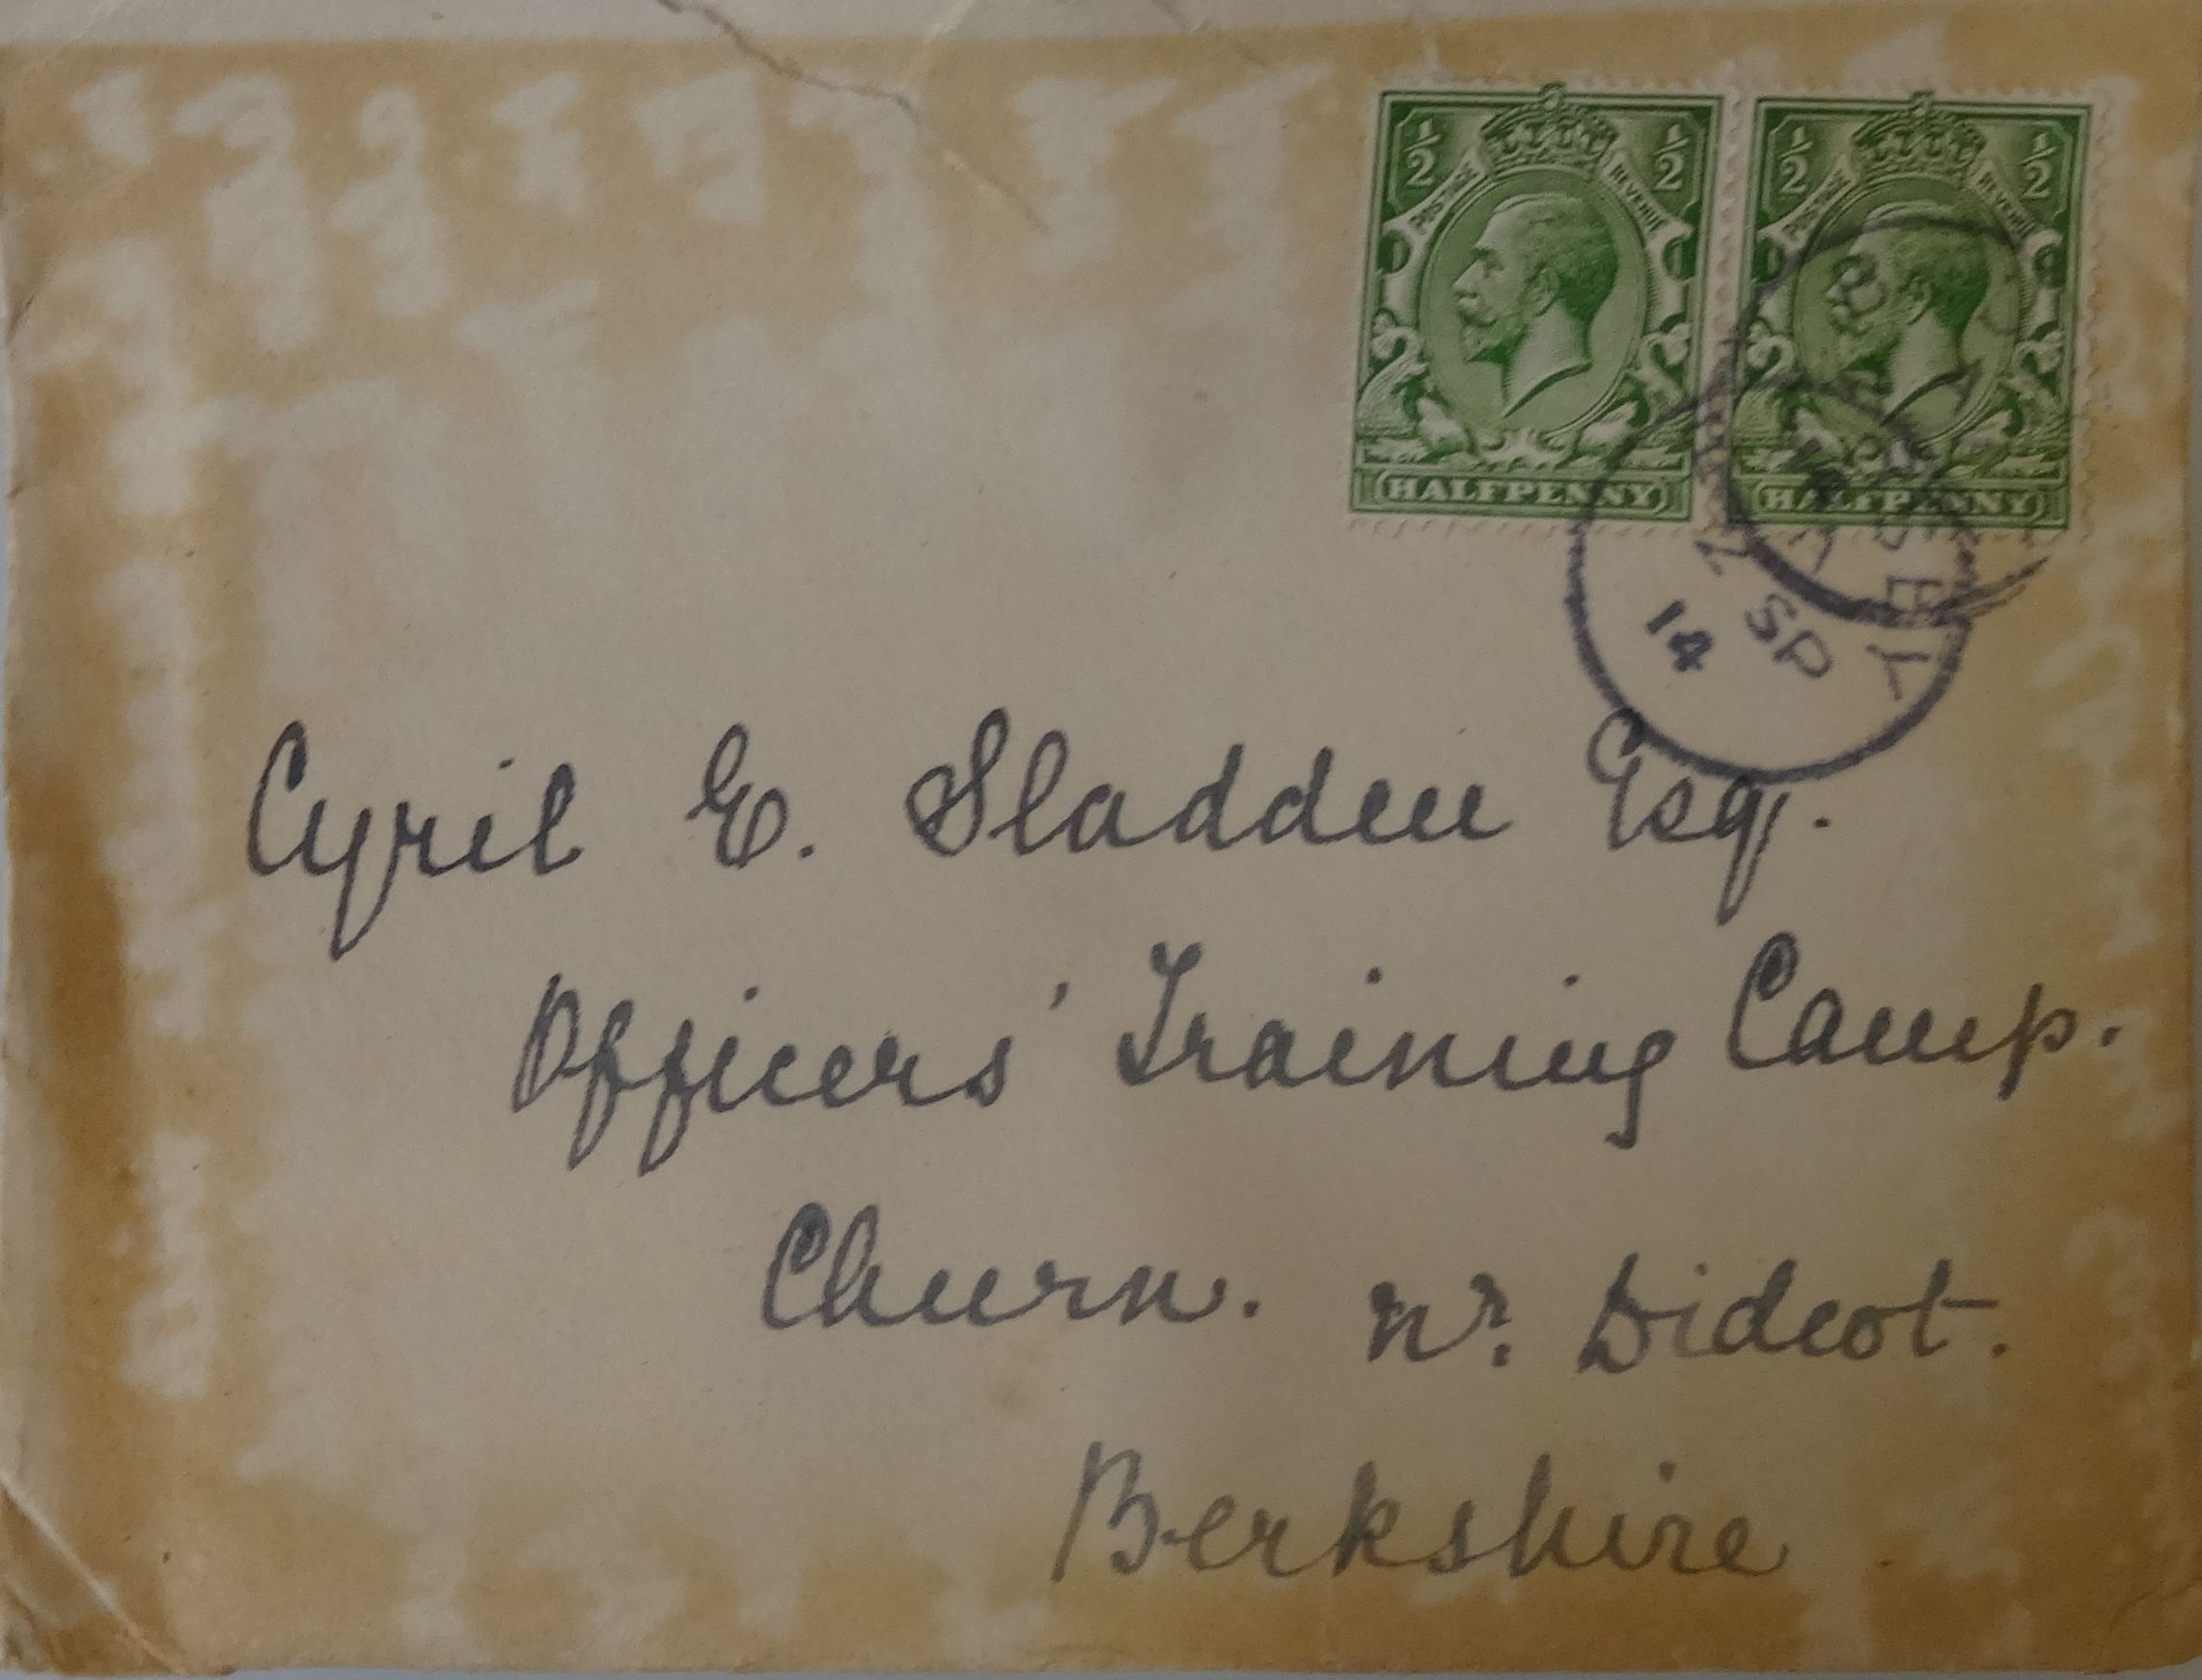 ½ ½ ½ ½
POSTAGE REVENUE POSTAGE REVENUE
HALFPENNY HALFPENNY
SP
14
Cyril E. Sladden Esq.
Officers' Training Camp.
Churn. Nr. Didcot.
Berkshire